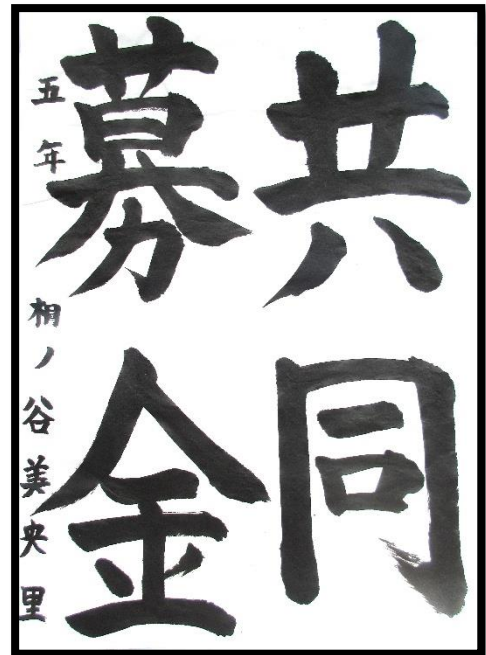 共同
募金
五年 相ノ谷美央里